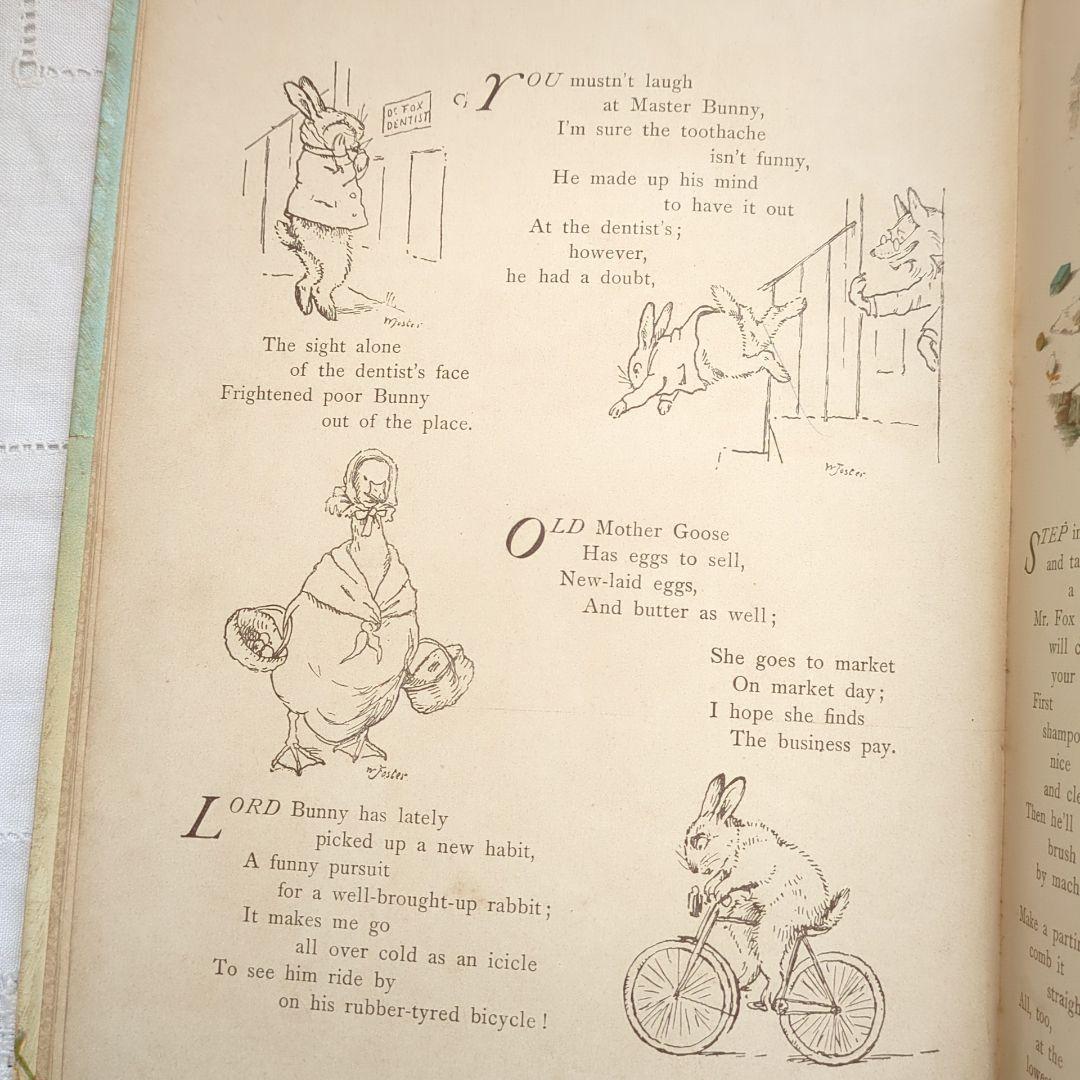 Dr. FOX
DENTIST
YOU mustn't laugh
at Master Bunny,
I'm sure the toothache
isn't funny,
He made up his mind
to have it out
At the dentist's;
however,
he had a doubt,
W Foster
The sight alone
of the dentist's face
Frightened poor Bunny
out of the place.
W Foster
OLD Mother Goose
Has eggs to sell,
New-laid eggs,
And butter as well;
She goes to market
On market day;
I hope she finds
The business pay.
W Foster
LORD Bunny has lately
picked up a new habit,
A funny pursuit
for a well-brought-up rabbit;
It makes me go
all over cold as an icicle
To see him ride by
on his rubber-tyred bicycle!
STEP
and
a
Mr. Fox
will
your
First
nice
and
Then he'll
brush
by
Make a
comb it
All, too,
at the